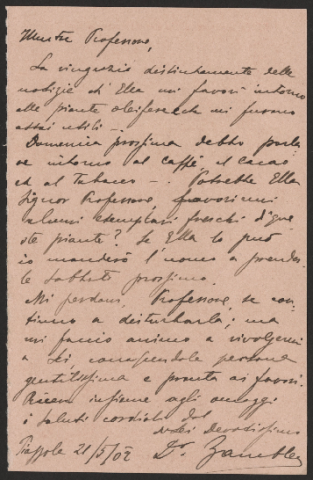 Illustre Professore,
La ringrazio distintamente delle
notizie ch'Ella mi favorì intorno
alle piante oleifere che mi furono
assai utili. -
Domenica prossima debbo parla-
re intorno al caffè, al cacao
ed al Tabacco -. Potrebbe Ella
Signor Professore, favorirmi
alcuni esemplari freschi di que-
ste piante? Se Ella lo può
io manderò l'uomo a prender-
le Sabbato prossimo.
Mi perdoni, Professore, se con-
tinuo a disturbarla; ma
mi faccio animo a rivolgermi
a Lei conoscendole persona
gentilissima e pronta ai favori.
Riceva insieme agli omaggi
i saluti cordiali del
devotissimo
21/5/02 Dr.